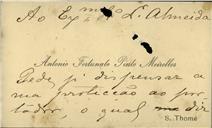 Ao Ex.mo Sr. Almeida
Antonio Fortunato Pinto Meirelles
Pede p.a dispensar a
sua protecção ao por-
tador, o qual me dir
S. Thomé